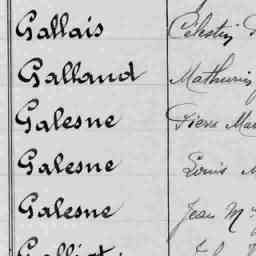 Gallais Célestin
Galland Mathurin
Galesne Pierre
Galesne Louis
Galesne Jean M